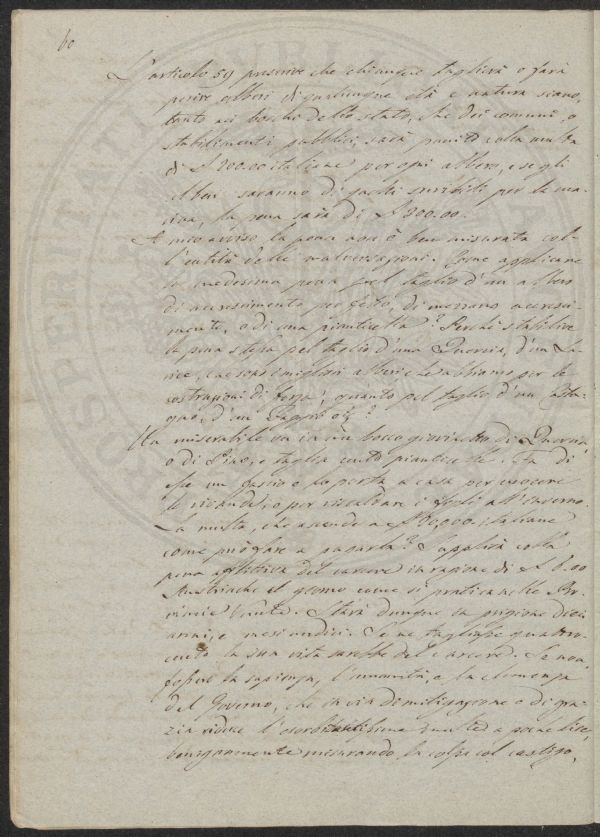 60
L'articolo 59 prescrive che chiunque taglierà o farà
perire alberi di qualunque età e natura siano,
tanto nei boschi dello stato, che dei comuni, o
stabilimenti pubblici, sarà punito colla multa
di £ 200.00 italiane per ogni albero, e se gli
alberi saranno di quelli servibili per la ma-
rina, la pena sarà di £ 300.00.
A mio avviso la pena non è ben misurata col-
l'entità delle malversazioni. Come applicare
la medesima pena pel taglio d'un albero
di accrescimento perfetto, di mezzano accresci-
mento, o di una pianticella? Perché stabilire
la pena stessa pel taglio d'una Quercia, d'un La-
rice, che sono i migliori alberi che abbiamo per le
costruzioni di forza, quanto pel taglio d'un Casta-
gno, d'un Faggio &?
Un miserabile va in un bosco giovinetto di Quercia
o di Pino, e taglia cento pianticelle. Fa di
esse un fascio e lo porta a casa per cuocere
le vivande, o per riscaldare i figli all'inverno.
La multa, che ascende a £ 20,000. italiane
come può fare a pagarla? Supplirà colla
pena afflittiva del carcere in ragione di £ 6.00
Austriache il giorno come si pratica nelle Pro-
vincie Venete. Starà dunque in prigione dieci
anni, e mesi undici. Se ne tagliasse quattro-
cento la sua vita sarebbe del carcere. Se non
fosse la sapienza, l'umanità, e la clemenza
del Governo, che in via di mitigazione o di gra-
zia riduce l'esorbitantissima multa a poche lire,
benignamente misurando la colpa col castigo,
PROSPERITATI PUBLI